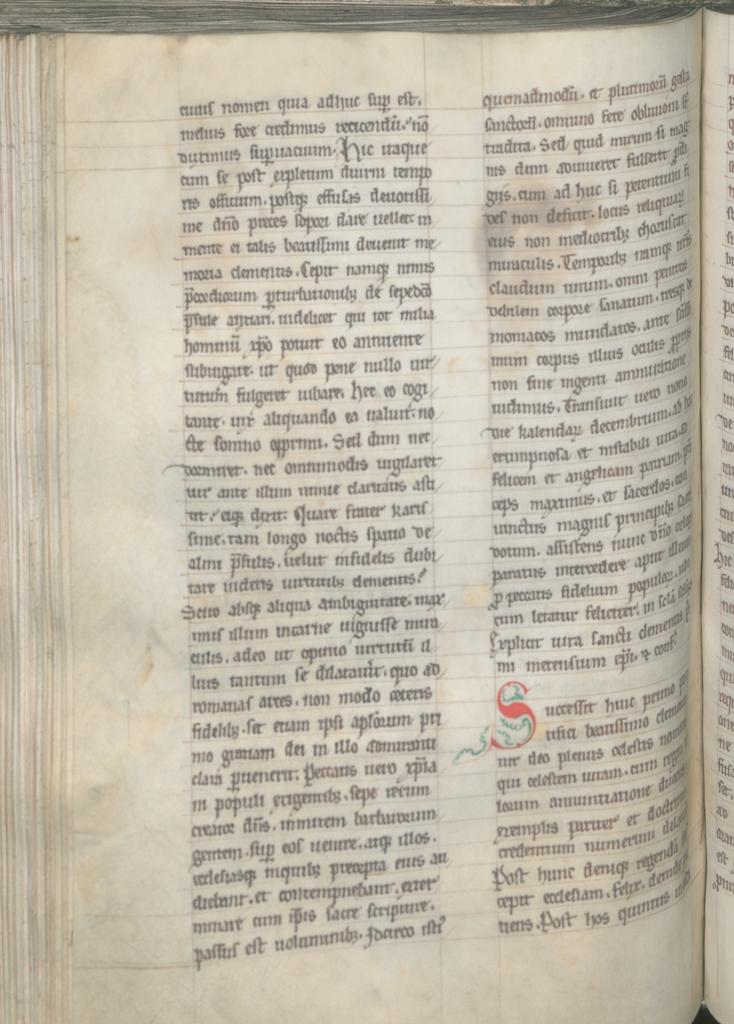 cuius nomen quia adhuc sup est.
melius fore credimus reticendū. nō
duximus supuacuum. Hic itaque
cum se post expletum diurni tempo
ris officium. postq; effusas deuotissi
me dn̄o preces sopori dare uellet in
mente ei talis beatissimi deuenit me
moria clementis. Cepit namq; nimis
p̄cordiorum pturbationib; de sepedc̄o
p̄sule anxiari. uidelicet qui tot milia
hominū xp̄o potuit eo annuente
subiugare. ut quod pene nullo uir
tutum fulgeret iubare. Hec eo cogi
tante. uix aliquando ea ualuit no
cte somno opprimi. Sed dum nec
dormiret. nec omnimodis uigilaret
uir ante illum nimie claritatis asti
tit. eiq; dixit. Quare frater karis
sime. tam longo noctis spatio de
almi p̄sulis. uelut infidelis dubi
tare uideris uirtutib; clementis?
Scito absq; aliqua ambiguitate. max
imis illum in carne uiguisse mira
culis. adeo ut opinio uirtutū il
lius tantum se dilatauit. quo ad
romanas arces. non modo ceteris
fidelib;. set etiam ipsi ap̄lorum pri
mo gratiam dei in illo admiranti
clara puenerit. Peccatis uero xp̄ia
ni populi exigentib;. sepe rerum
creator dn̄s. inmitem barbarorum
gentem. sup eos uenire. atq; illos.
ecclesiasq; in quib; precepta eius au
diebant. et contempnebant. exter
minare cum ip̄is sacre scripture.
passus est uoluminib;. Idcirco isti
quemadmodū. et plurimorū gesta
sanctorū. omnino fere obliuioni s̄
tradita. Sed quid mirum si mag
nis dum adiuueret fulserit pdi
giis. cum ad huc si petentium fi
des non deficit. locus reliquiarȝ
eius non mediocrib; choruscat
miraculis. Temporib; namq; nr̄is
claudum unum. omni penitus
debilem corpore sanatum. tresq; de
moniacos mundatos. ante
mum corpus illius oculis ppriis
non sine ingenti ammiratione
uidimus. Transiuit uero nono
die kalendarȝ decembrium. ab hac
erumpnosa et instabili uita. ad
felicem et angelicam patriam. p̄n
ceps maximus. et sacerdos. con
iunctus magnis principib;
uotum. assistens nunc dn̄o
paratus intercedere apud illum
p peccatis fidelium populorȝ. ubi
cum letatur feliciter. in
Explicit uita sancti clementis p̄
mi metensium ep̄i. et conf̄.
Successit huic primo pon
tifici beatissimo clementi
uir deo plenus celestis nomine
qui celestem uitam. cum regni
lorum annuntiatione
exemplis pariter et doctrina
credentium numerum
Post hunc deniq; regendā
cepit ecclesiam. felix. deinde
tiens. Post hos quintus